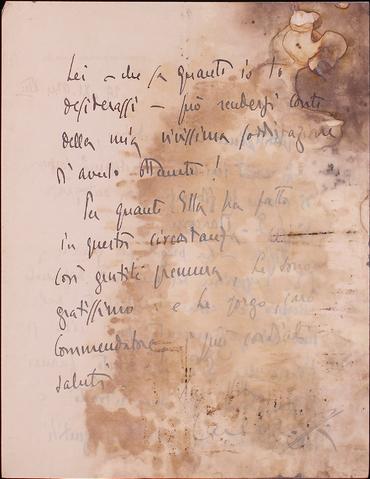 Lei – che sa quanto io lo
desiderassi – può rendersi conto
della mia vivissima soddisfazione
d'averlo ottenuto!
Per quanto Ella ha fatto
in questa circostanza
così gentile premura, Le sono
gratissimo e Le porgo, caro
Commendatore, i più cordiali
saluti